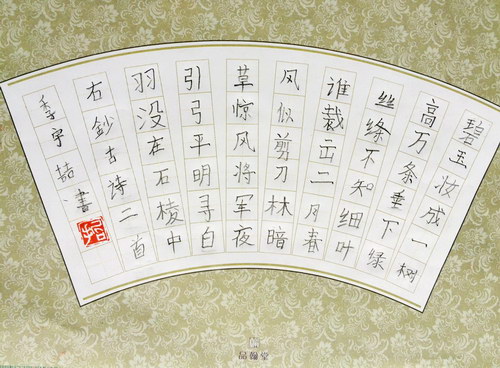 碧玉妆成一树
高万条垂下绿
丝绦不知细叶
谁裁出二月春
风似剪刀林暗
草惊风将军夜
引弓平明寻白
羽没在石棱中
右鈔古诗二首
季宇喆書
品翰堂